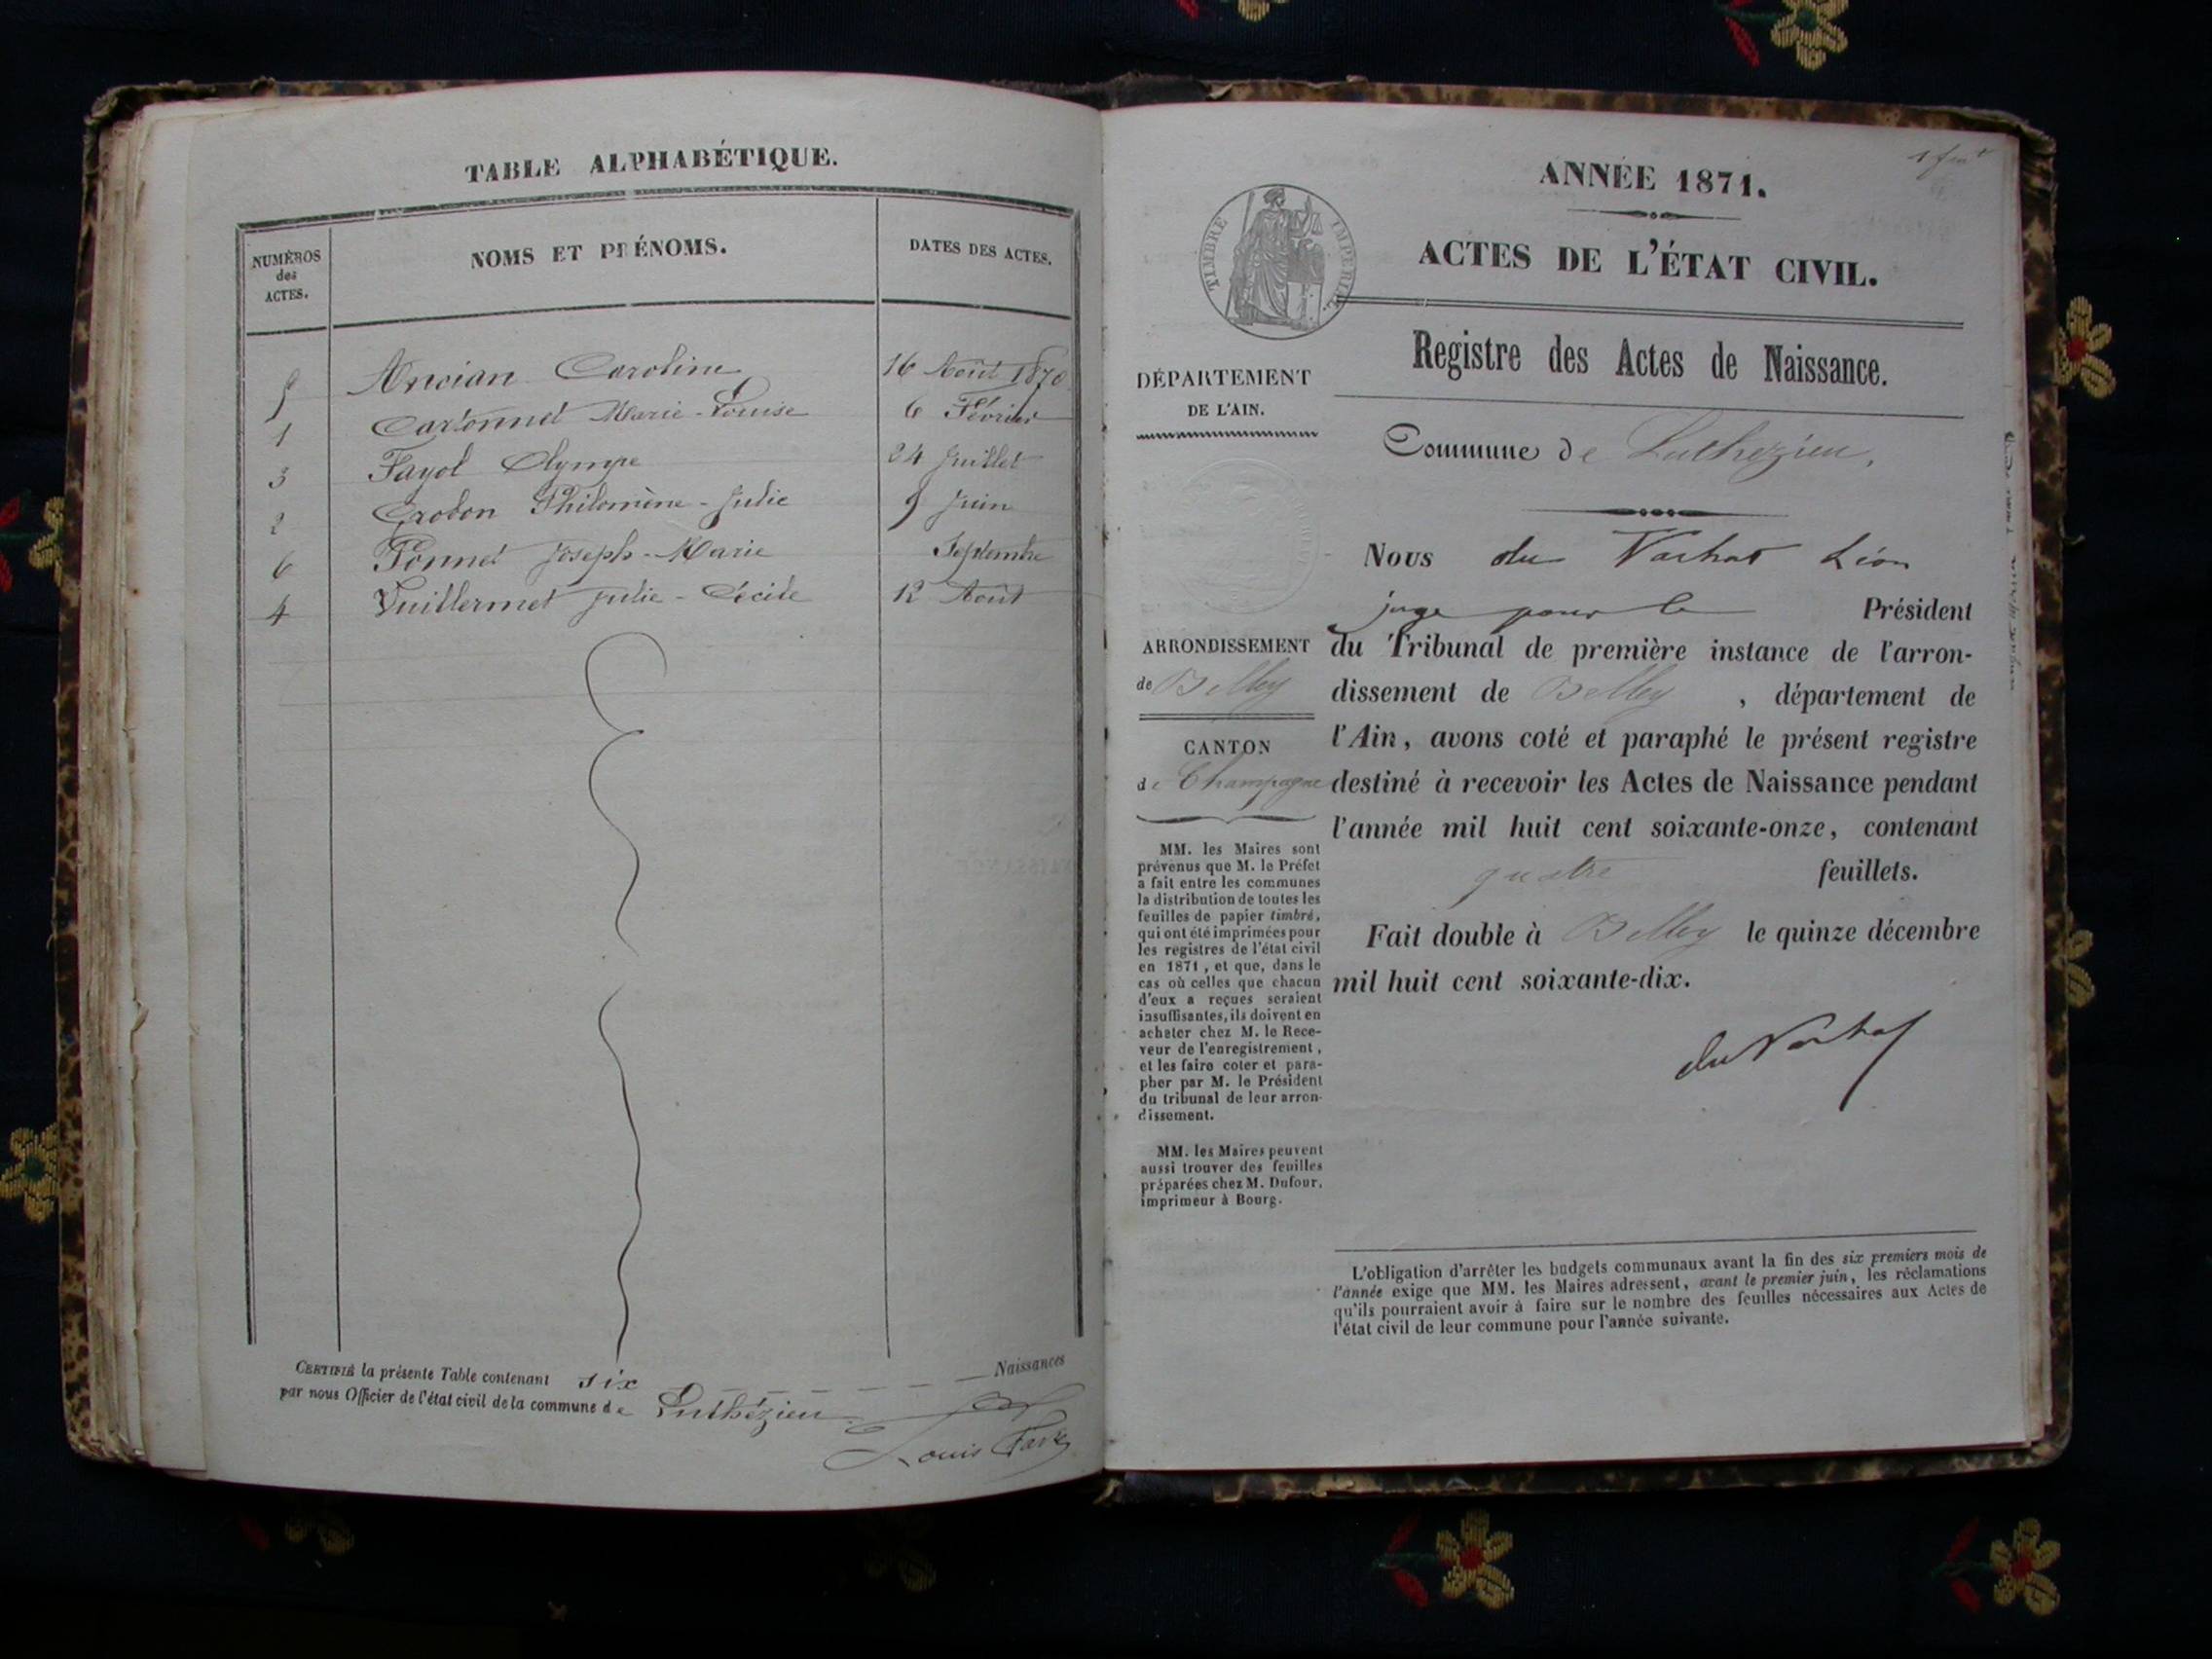 TABLE ALPHABÉTIQUE.
NUMÉROS des ACTES.
NOMS ET PRÉNOMS.
DATES DES ACTES.
5 Ancian Caroline 16 Août 1870
1 Carbonnet Marie-Louise 6 Février
3 Fayol Olympe 24 Juillet
2 Grobon Philomène-Julie 9 Juin
6 Ponnet Joseph-Marie Septembre
4 Vuillermet Julie-Cécile 12 Août
CERTIFIÉ la présente Table contenant six Naissances
par nous Officier de l'état civil de la commune de Luthézieu
Louis
ANNÉE 1871.
ACTES DE L'ÉTAT CIVIL.
TIMBRE IMPÉRIAL
Registre des Actes de Naissance.
DÉPARTEMENT
DE L'AIN.
Commune de Luthezieu,
Nous du Varhat Léon
juge pour le Président
du Tribunal de première instance de l'arron-
dissement de Belley, département de
l'Ain, avons coté et paraphé le présent registre
destiné à recevoir les Actes de Naissance pendant
l'année mil huit cent soixante-onze, contenant
quatre feuillets.
Fait double à Belley le quinze décembre
mil huit cent soixante-dix.
du Varhat
ARRONDISSEMENT
de Belley
CANTON
de Champagne
MM. les Maires sont
prévenus que M. le Préfet
a fait entre les communes
la distribution de toutes les
feuilles de papier timbré,
qui ont été imprimées pour
les registres de l'état civil
en 1871, et que, dans le
cas où celles que chacun
d'eux a reçues seraient
insuffisantes, ils doivent en
acheter chez M. le Rece-
veur de l'enregistrement,
et les faire coter et para-
pher par M. le Président
du tribunal de leur arron-
dissement.
MM. les Maires peuvent
aussi trouver des feuilles
préparées chez M. Dufour,
imprimeur à Bourg.
L'obligation d'arrêter les budgets communaux avant la fin des six premiers mois de
l'année exige que MM. les Maires adressent, avant le premier juin, les réclamations
qu'ils pourraient avoir à faire sur le nombre des feuilles nécessaires aux Actes de
l'état civil de leur commune pour l'année suivante.